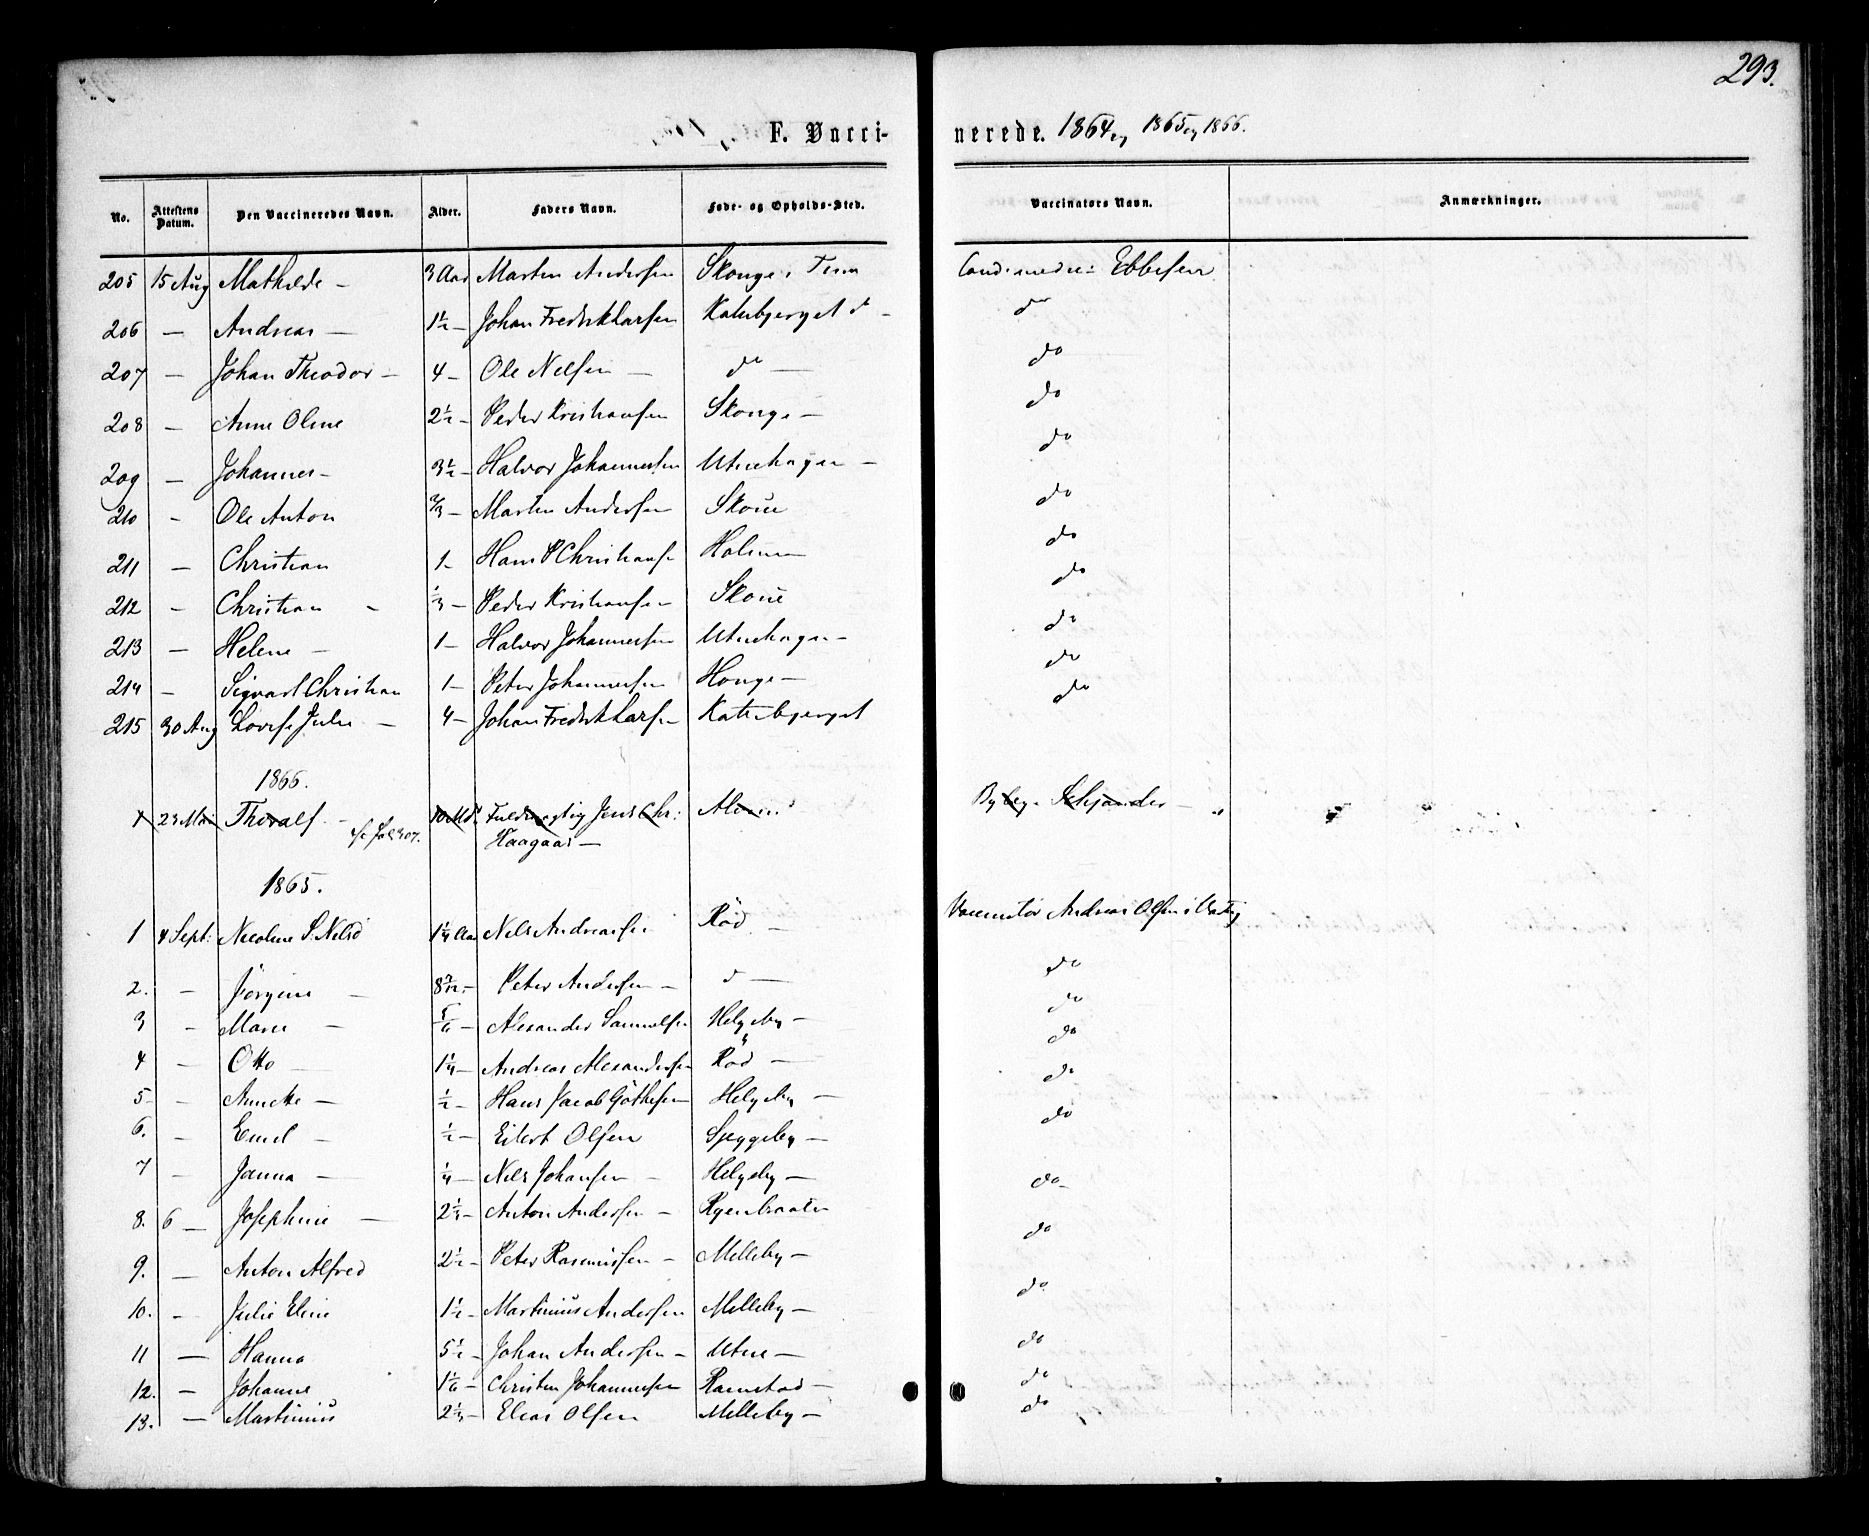 293.
F. Vacci-nerede. 1864 og 1865 og 1866.
No. Attestens Datum. Den Vaccineredes Navn. Alder. Faders Navn. Føde- og Opholds-Sted. Vaccinators Navn. Anmærkninger.
205 15 Aug Mathilde – 3 Aar Marten Andersen Skonge i Cand. medic: Ebbesen
206 — Andreas — 1½ – Johan Fredrik Larsen Katebjerget d – do
207 — Johan Theodor – 4 – Ole Nelsen — do — do
208 — Anne Oline 2½ – Peder Kristiansen Skonge – do
209 — Johannes – 3½ – Halvor Johannessen Utnehagen – do
210 – Ole Anton ⅔ – Marten Andersen Skoue do
211 — Christian 1 – Hans P Christians do
212 – Christian – ⅓ – Peder Kristiansen Skoue do
213 — Helene – 1 – Halvor Johannessen Utnehagen – do
214 – Sigvart Christian 1 – Peter Johannessen Honge – do
215 30 Aug Lovise Julie – 4 – Johan Fredrik Larsen Katebjerget do
1866.
1 23 Mai Thoralf – 10 Md. Fuldmægtig Jens Chr: Moss Byfog. Schjander – "
cfr. Fol 307. Haagaas —
1865.
1 4 Sept: Nicoline S. Nelsd 1¼ Aar Nels Andreassen Röd – Vaccinatör Andreas Olsen i
2. – Jörgine – 8 – Peter Andersen – d — do
3 – Maren – ⅚ – Alexander Samuelsen Helgeby – do
4 – Otto — 1¼ – Andreas Alexandersen Röd — do
5 – Annette – ½ – Hans Jacob Göthesen Helgeby — do
6. – Emil – ½ – Eilert Olsen Speggeby – do
7 – Janna – ¼ – Nels Johansen – Helgeby – do
8. 6 — Josephine — 2⅓ – Anton Andersen – Ryenbraaten do
9. — Anton Alfred 2½ – Peter Rasmussen – Melleby – do
10. – Julie Eline 1½ – Martinius Andersen Melleby – do
11 — Hanna 5½ – Johan Andersen – Utne – do
12. – Johanne 1⅙ – Christen Johannessen Ramstad – do
13. — Martinius 2⅓ – Elias Olsen Melleby – do